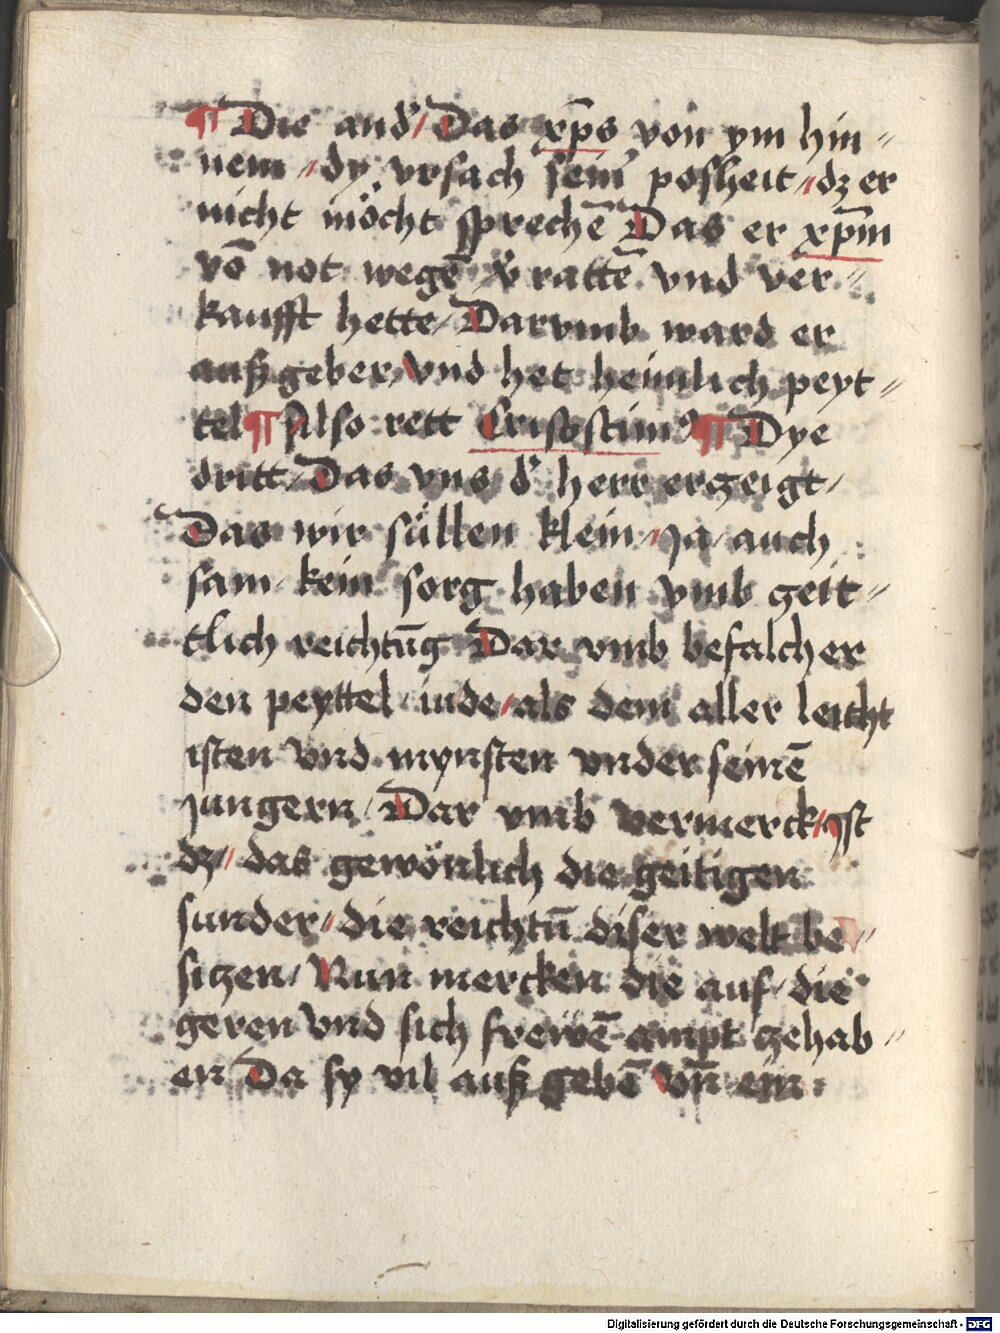 ¶ Die and̕ / Das xp̅s von ym hin„
nem / dy vrsach sein̕ posheit / dz er
nicht möcht sprechē Das er xp̅m
vō not wegē v̕rattē vnd ver„
kaufft hette / Darvmb ward er
außgeber / vnd het heimlich peyt„
tel ¶ Also rett Crisostim9 ¶ Dye
dritt / Das vns d̕ herr erczeigt /
Das wir süllen klein / ja / auch
sam kein sorg haben vmb czeit„
tlich reichtūg Dar vmb befalch er
den peyttel iude / als dem aller leicht
isten vnd mynsten vnder seinē
jungern / Dar vmb vermerck / ist
dz / das gewönlich die geitigen
sunder / die reichtū diser welt be„
siczen / Nun mercken die auf / die
geren vnd sich frewē ampt czehab„
en Da sy vil auß gebē vn̄ ein
Digitalisierung gefördert durch die Deutsche Forschungsgemeinschaft - DFG